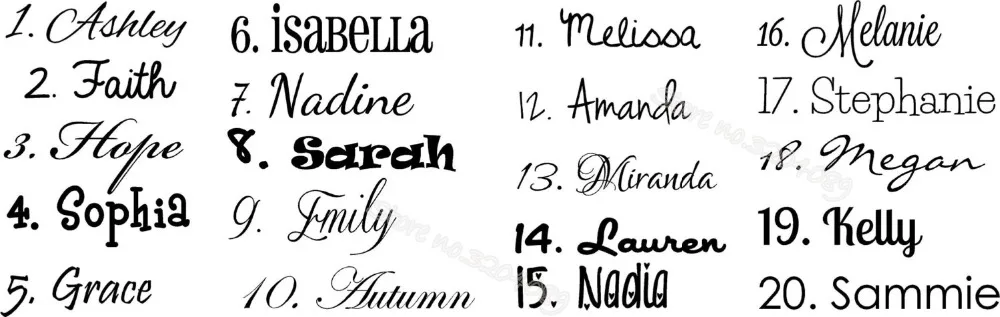 1. Ashley
2. Faith
3. Hope
4. Sophia
5. Grace
6. isabella
7. Nadine
8. Sarah
9. Emily
10. Autumn
11. Melissa
12. Amanda
13. Miranda
14. Lauren
15. Nadia
16. Melanie
17. Stephanie
18. Megan
19. Kelly
20. Sammie